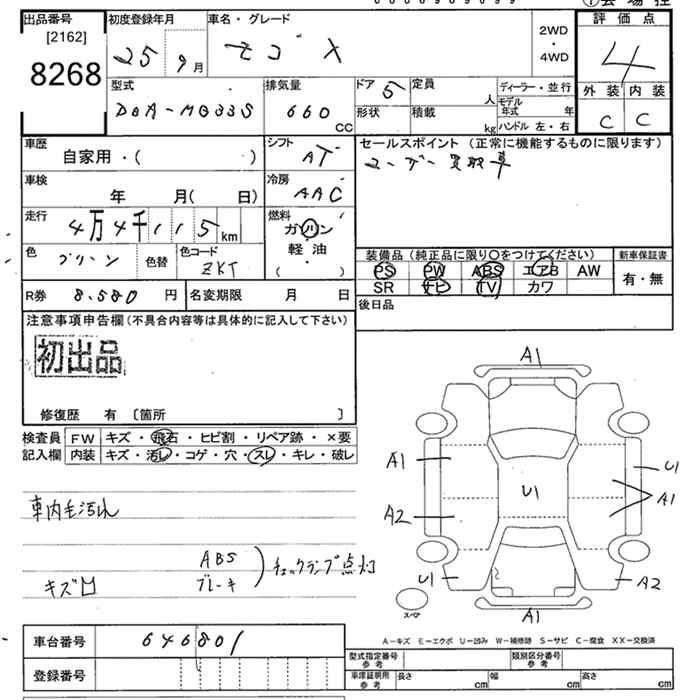 出品番号
[2162]
8268
初度登録年月
25 9月
車名・グレード
モコ X
2WD
・
4WD
評価点
4
外装 内装
C C
型式
DBA-MG33S
排気量
660
CC
ドア 5
形状
定員
人
積載
kg
ディーラー・並行
モデル年式 年
ハンドル 左・右
車歴
自家用・( )
シフト
AT
セールスポイント (正常に機能するものに限ります)
ユーザー買取車
車検
年 月( 日)
冷房
AAC
走行
4万4千115km
燃料
ガソリン
軽油
( ・ )
色
グリーン
色替
色コード
ZKT
装備品 (純正品に限り〇をつけてください)
PS PW ABS エアB AW
SR ナビ TV カワ
新車保証書
有・無
R券 8,580 円
名変期限 月 日
後日品
注意事項申告欄 (不具合内容等は具体的に記入して下さい)
初出品
修復歴 有 〔箇所 〕
検査員
記入欄
FW キズ・飛石・ヒビ割・リペア跡・×要
内装 キズ・汚レ・コゲ・穴・スレ・キレ・破レ
車内毛汚れ
ABS
ブレーキ
チェックランプ点灯
キズ凹
A1
A1
A2
U1
U1
A1
U1
A2
スペア
A1
A-キズ E-エクボ U-凹み W-補修跡 S-サビ C-腐食 XX-交換済
車台番号 646801
登録番号
型式指定番号
参考
類別区分番号
参考
車庫証明用
参考
長さ cm
幅 cm
高さ cm